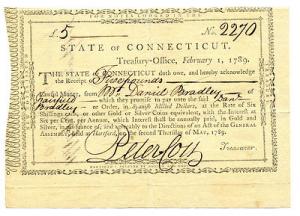 £5 No. 2270
STATE OF CONNECTICUT.
Treasury-Office, February 1, 1789.
THE STATE OF CONNECTICUT doth owe, and hereby acknowledge
the Receipt of Five pounds
Lawful Money, from Mr. Daniel Bradley of
Fairfield which they promise to pay unto the said Danl
Bradley or Order, in Spanish Milled Dollars, at the Rate of Six
Shillings each, or other Gold or Silver Coins equivalent, with the Interest at
Six per Cent. per Annum, which Interest shall be annually paid, in Gold and
Silver, and agreeably to the Directions of an Act of the GENERAL
ASSEMBLY, Hartford, on the second Thursday of MAY, 1789.
Peter Colt Treasurer.